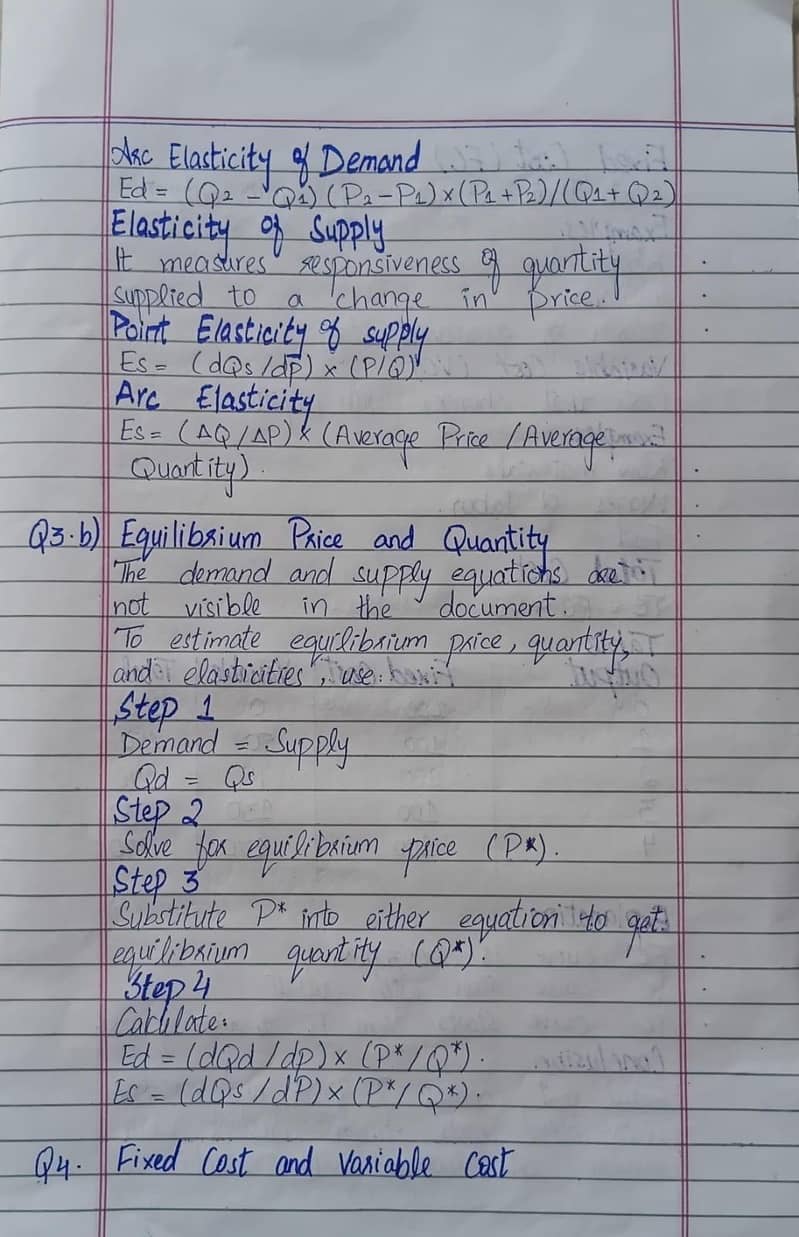 Arc Elasticity of Demand
Ed = (Q2 - Q1) (P2-P1)×(P1+P2)/(Q1+Q2)
Elasticity of Supply
It measures responsiveness of quantity
supplied to a change in price.
Point Elasticity of supply
Es = (dQs/dp) × (P/Q)
Arc Elasticity
Es = (ΔQ/ΔP) × (Average Price / Average
Quantity).
Q3.b) Equilibrium Price and Quantity
The demand and supply equations are
not visible in the document.
To estimate equilibrium price, quantity,
and elasticities, use:
Step 1
Demand = Supply
Qd = Qs
Step 2
Solve for equilibrium price (P*).
Step 3
Substitute P* into either equation to get
equilibrium quantity (Q*).
Step 4
Calculate:
Ed = (dQd/dp) × (P*/Q*).
Es = (dQs/dP) × (P*/Q*).
Q4. Fixed Cost and Variable Cost